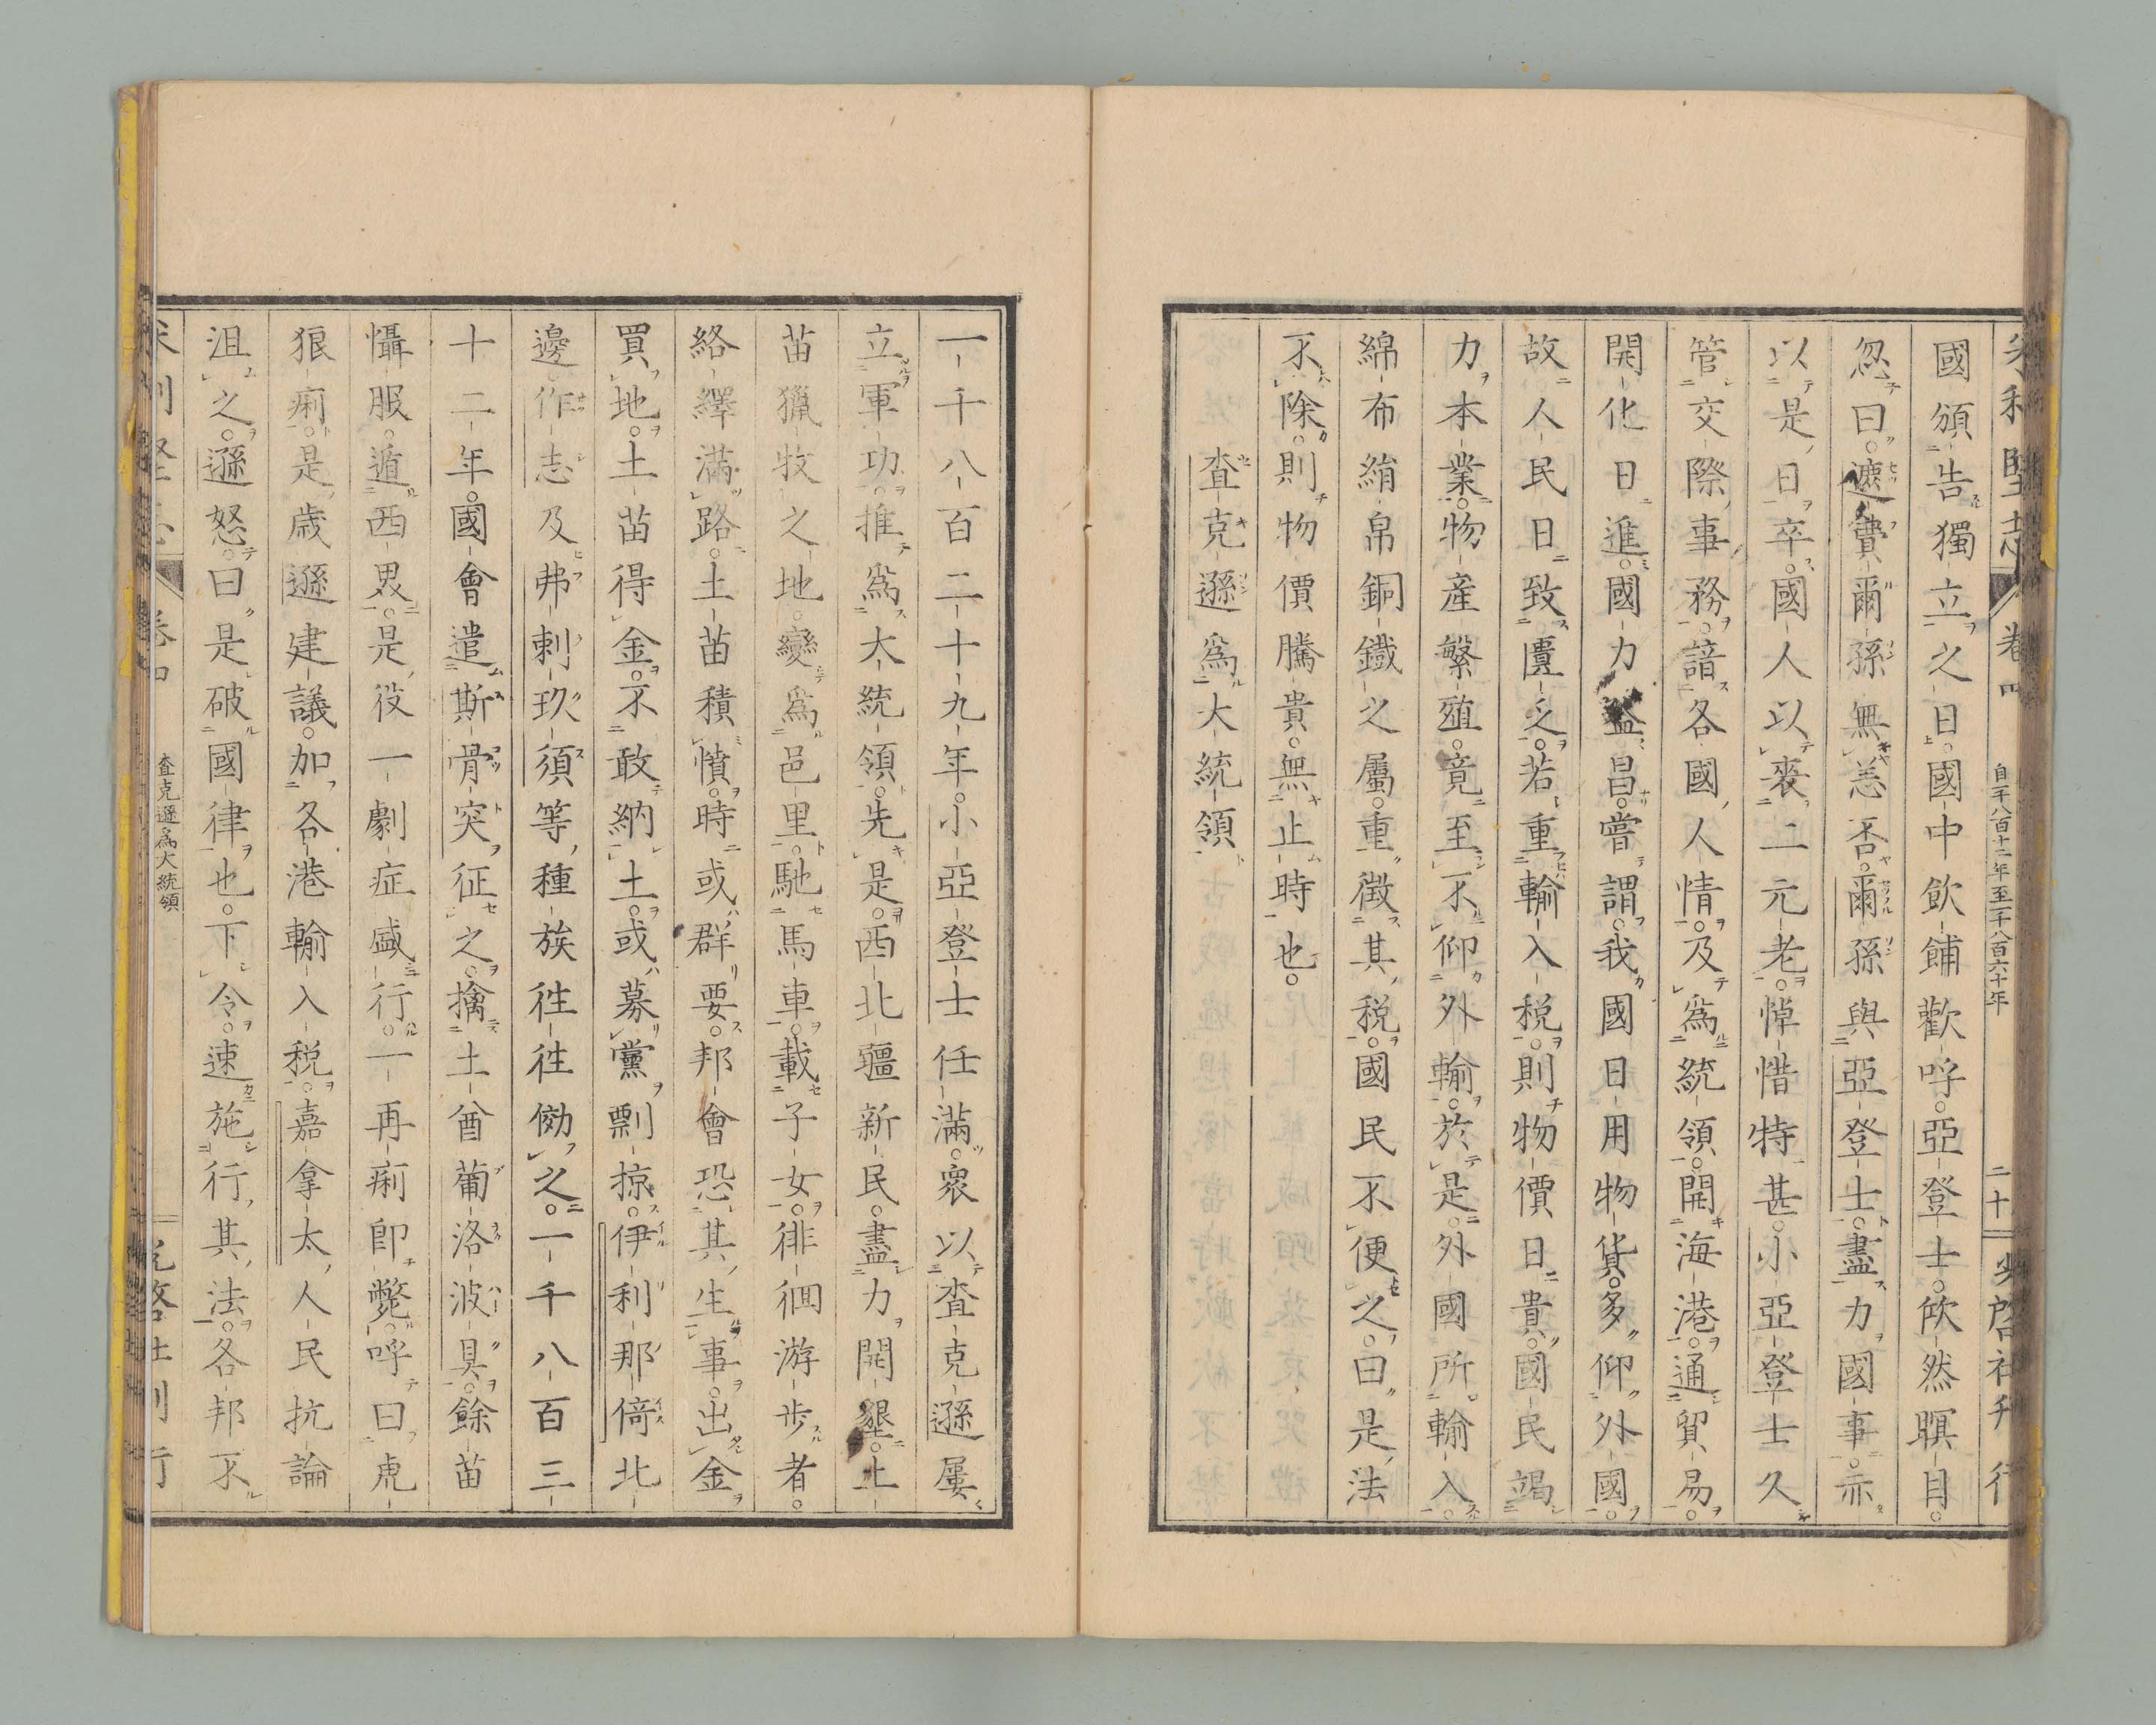 米利堅志 卷四 自千八百十二年至千八百六十年 二十 光啓社刊行
國頒告獨立之日。國中飲餔歡呼。亞登士。欣然瞑目。
忽曰。遮費爾孫無恙否。爾孫與亞登士。盡力國事。亦
以是日卒。國人以喪二元老。悼惜特甚。小亞登士久
管交際事務。諳各國人情。及爲統領。開海港。通貿易。
開化日進。國力益昌。嘗謂。我國日用物貨。多仰外國。
故人民日致匱乏。若重輸入税。則物價日貴。國民竭
力本業。物産繁殖。竟至不仰外輸。於是外國所輸入。
綿布絹帛銅鐵之屬。重徴其税。國民不便之。曰。是法
不除。則物價騰貴。無止時也。
査克遜爲大統領
一千八百二十九年。小亞登士任滿。衆以査克遜屢
立軍功。推爲大統領。先是。西北疆新民。盡力開墾。土
苗獵牧之地。變爲邑里。馳馬車。載子女。徘徊游步者。
絡繹滿路。土苗積憤。時或群要。邦會恐其生事。出金
買地。土苗得金。不敢納土。或募黨剽掠。伊利那倚北
邊作志及弗剌玖須等種族徃徃傚之。一千八百三
十二年。國會遣斯骨突。征之。擒土酋葡洛波具。餘苗
懾服。遁西畍。是役一劇症盛行。一再痢卽斃。呼曰虎
狼痢。是歳遜建議。加各港輸入税。嘉拿太人民抗論
沮之。遜怒。曰。是破國律也。下令。速施行其法。各邦不
米利堅志 卷四 査克遜爲大統領 光啓社刊行